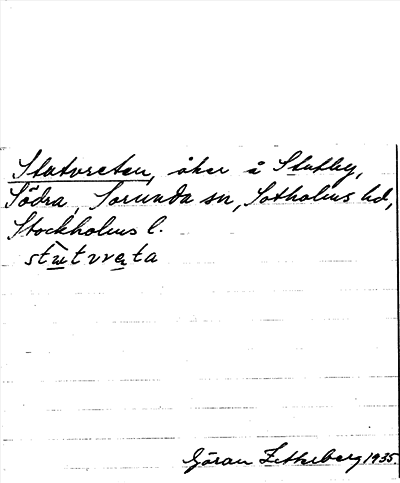 Stutvreten, åker å Stutby,
Södra, Sorunda sn, Sotholms hd,
Stockholms l.
stu̲tvre̲ta
Göran Zetterberg 1935.